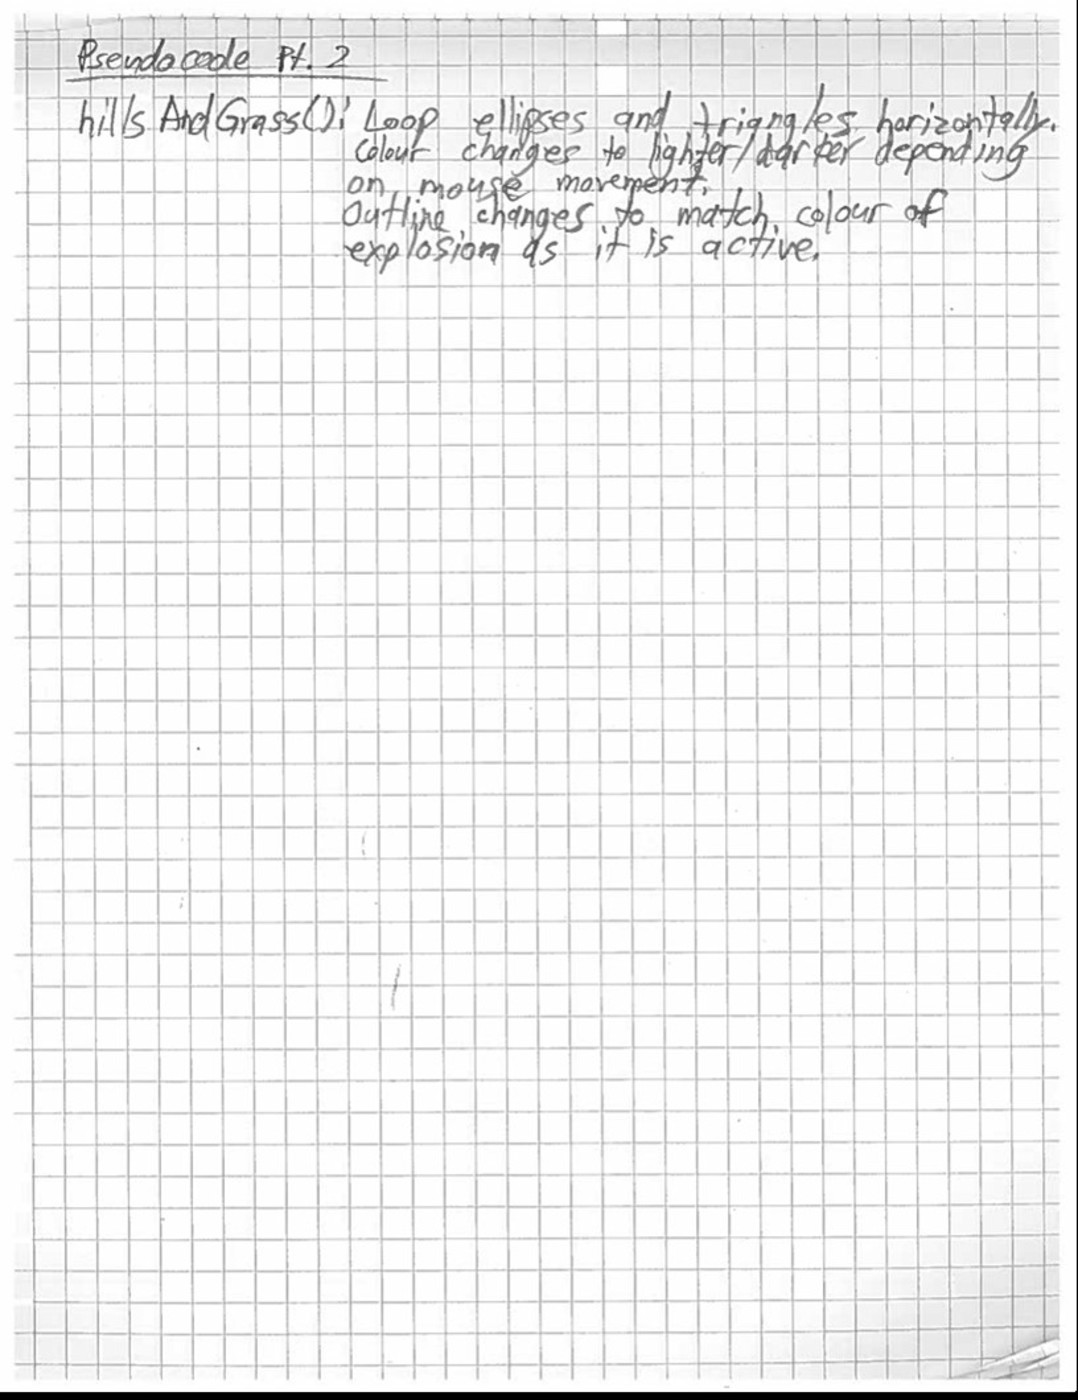 Pseudocode Pt. 2
hillsAndGrass(): Loop ellipses and triangles horizontally.
Colour changes to lighter/darker depending
on mouse movement.
Outline changes to match colour of
explosion as it is active.